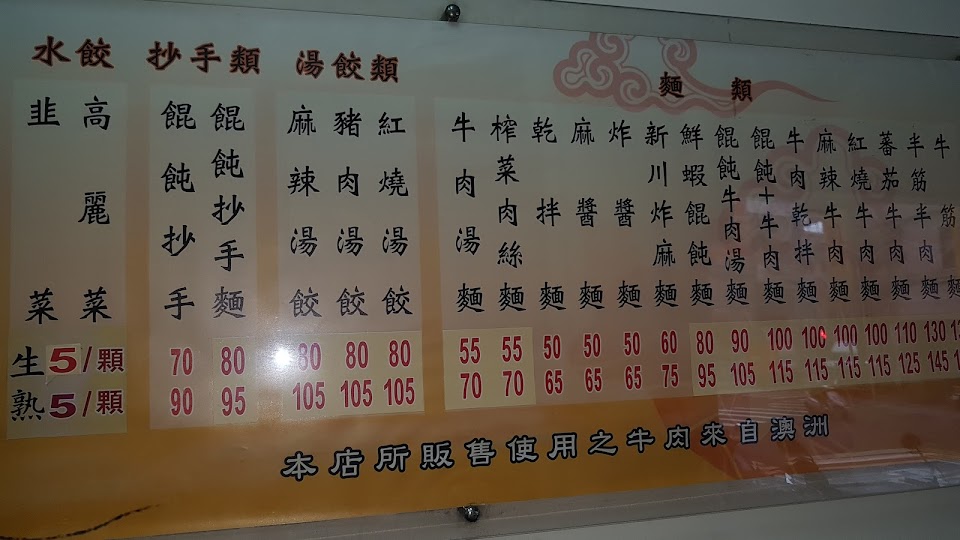 水餃
韭菜
高麗菜
生5/顆
熟5/顆
抄手類
餛飩抄手
餛飩抄手麵
70 80
90 95
湯餃類
麻辣湯餃
豬肉湯餃
紅燒湯餃
80 80 80
105 105 105
麵類
牛肉湯麵
榨菜肉絲麵
乾拌麵
麻醬麵
炸醬麵
新川炸麻麵
鮮蝦餛飩麵
餛飩牛肉湯麵
餛飩+牛肉麵
牛肉乾拌麵
麻辣牛肉麵
紅燒牛肉麵
蕃茄牛肉麵
半筋半肉麵
牛筋麵
55 55 50 50 50 60 80 90 100 100 100 100 110 130
70 70 65 65 65 75 95 105 115 115 115 115 125 145
本店所販售使用之牛肉來自澳洲